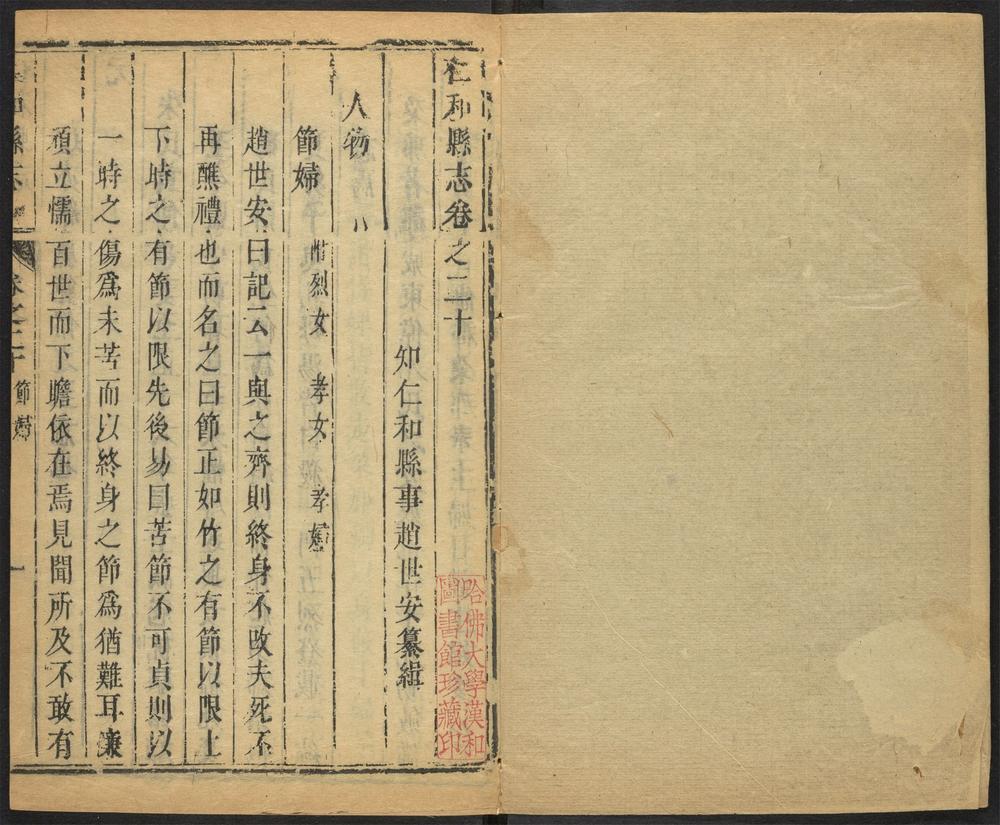 仁和縣志卷之二十
知仁和縣事趙世安纂緝
人物 八
節婦 烈女 孝女 孝婦
趙世安曰記云一與之齊則終身不改夫死不
再醮禮也而名之曰節正如竹之有節以限上
下時之有節以限先後易曰苦節不可貞則以
一時之傷爲未苦而以終身之節爲猶難耳廉
頑立懦百世而下瞻依在焉見聞所及不敢有
和縣志 卷之二十 節婦 一
哈佛大學漢和
圖書館珍藏印